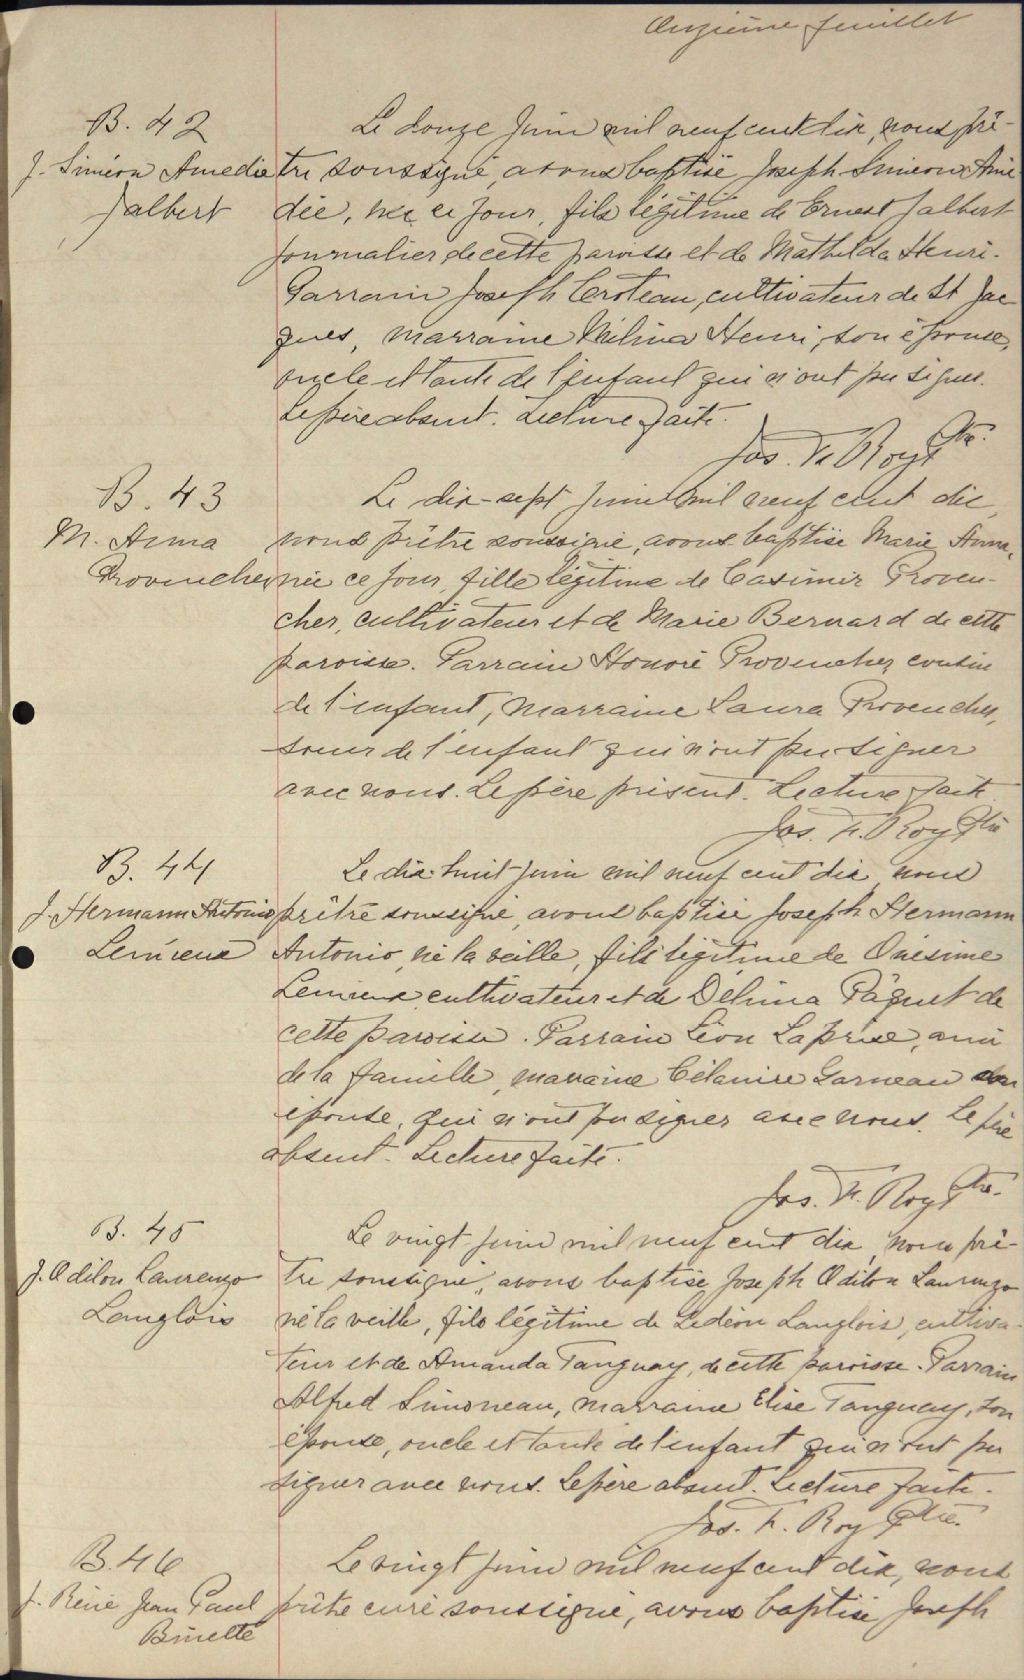 Onzième feuillet
B. 42
J. Siméon Amedie
Jalbert
Le douze Juin mil neuf cent dix, nous prê-
tre soussigné, avons baptisé Joseph Simeon Amé-
dée, né ce jour, fils légitime de Ernest Jalbert
journalier de cette paroisse et de Mathilda Henri.
Parrain Joseph Croteau, cultivateur de St Jac-
ques, marraine Mélina Henri, son épouse,
oncle et tante de l'enfant qui n'ont pu signer.
Le père absent. Lecture faite.
Jos. F. Roy Ptre.
B. 43
M. Anna
Provencher
Le dix-sept juin mil neuf cent dix,
nous prêtre soussigné, avons baptisé Marie Anna,
née ce jour, fille légitime de Casimir Proven-
cher, cultivateur et de Marie Bernard de cette
paroisse. Parrain Honoré Provencher cousin
de l'enfant, marraine Laura Provencher,
soeur de l'enfant qui n'ont pu signer
avec nous. Le père présent. Lecture faite
Jos. F. Roy Ptre
B. 44
J. Hermann Antonio
Lemieux
Le dix-huit juin mil neuf cent dix nous
prêtre soussigné, avons baptisé Joseph Hermann
Antonio, né la veille, fils légitime de Onésime
Lemieux cultivateur et de Délima Pâquet de
cette paroisse. Parrain Léon Laprise, ami
de la famille, marraine Célanire Garneau son
épouse, qui n'ont pu signer avec nous. Le père
absent. Lecture faite.
Jos. F. Roy Ptre.
B. 45
J. Odilon Laurenzo
Langlois
Le vingt juin mil neuf cent dix, nous prê-
tre soussigné, avons baptisé Joseph Odilon Laurenzo
né la veille, fils légitime de Gédéon Langlois, cultiva-
teur et de Amanda Tanguay, de cette paroisse. Parrain
Alfred Simoneau, marraine Elise Tanguay, son
épouse, oncle et tante de l'enfant qui n'ont pu
signer avec nous. Le père absent. Lecture faite.
Jos. F. Roy Ptre.
B. 46
J. Réné Jean Paul
Binette
Le vingt juin mil neuf cent dix, nous
prêtre curé soussigné, avons baptisé Joseph